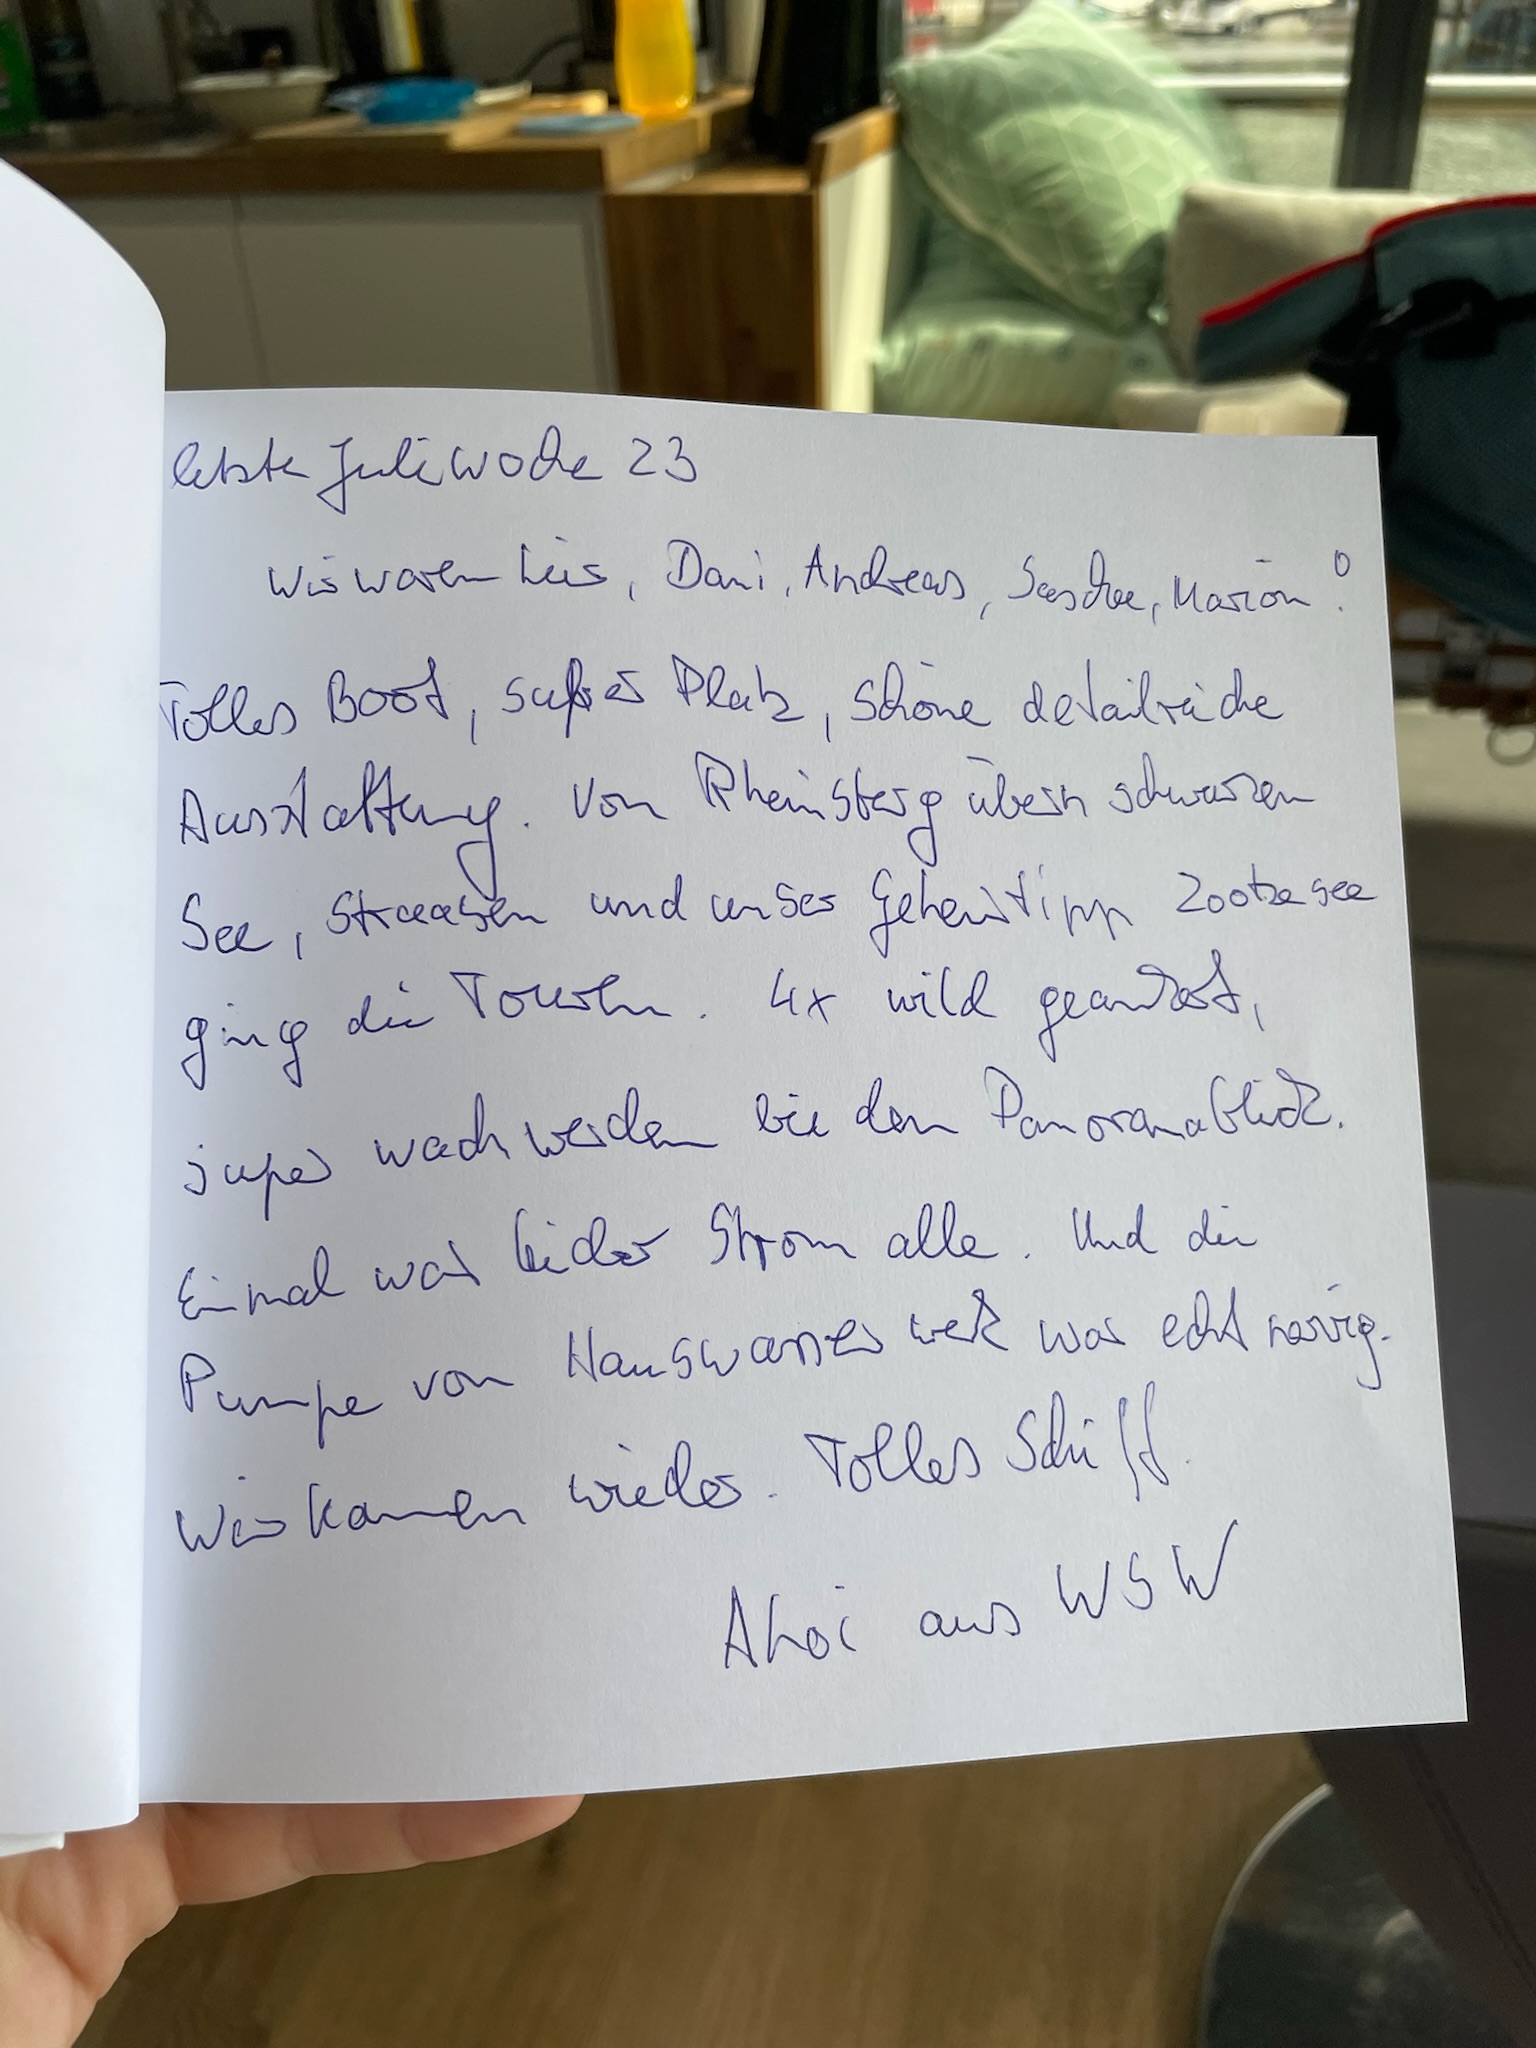 letzte Juliwoche 23
Wir waren hier, Dani, Andreas, Sascha, Marion!
Tolles Boot, super Platz, schöne detailreiche
Ausstattung. Von Rheinsberg übern schwarzen
See, und unser Geheimtipp Zootzensee
ging die Tour. 4x wild geankert,
super wach werden bei dem Panoramablick.
Einmal war leider Strom alle. Und die
Pumpe vom Hauswasser weck war echt nervig.
Wir kommen wieder. Tolles Schiff.
Ahoi aus WSW